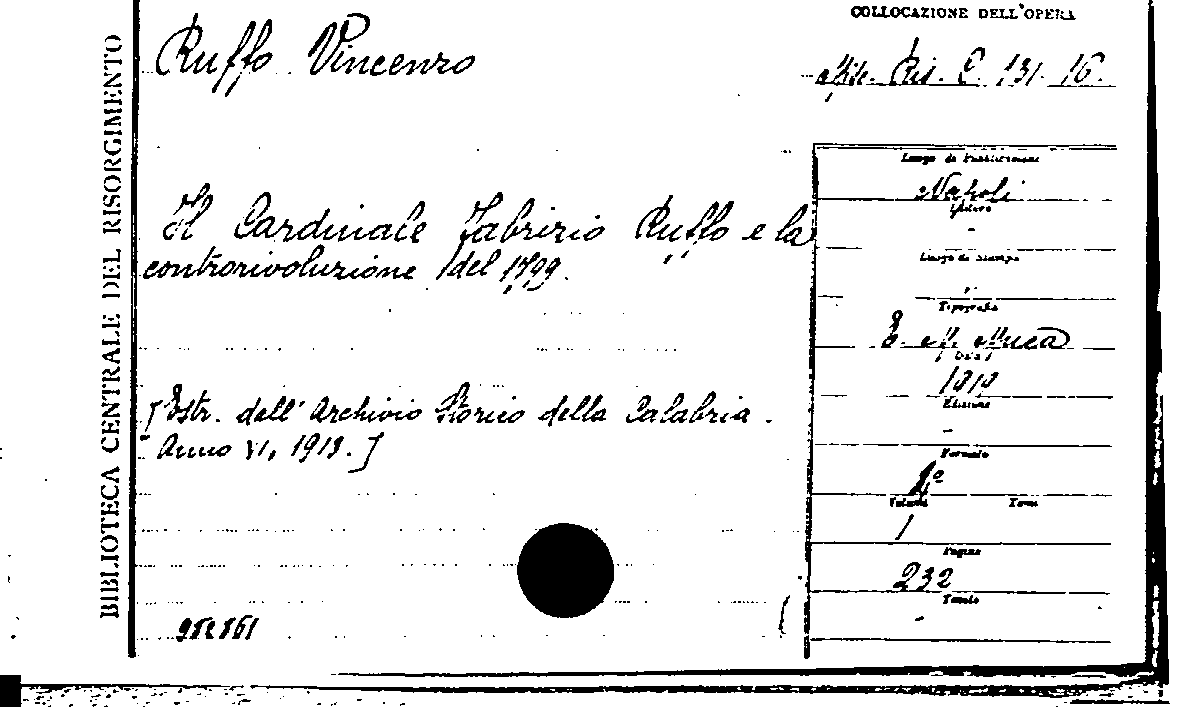 COLLOCAZIONE DELL'OPERA
Ruffo Vincenzo
Ris. C. 131. 16.
BIBLIOTECA CENTRALE DEL RISORGIMENTO
Il Cardinale Fabrizio Ruffo e la
controrivoluzione del 1799.
[Estr. dall' Archivio Storico della Calabria.
Anno VI, 1918.]
Luogo di Pubblicazione
Napoli
Editore
-
Luogo di Stampa
Tipografia
Data
Edizione
-
Formato
Volumi Tomi
1
Pagine
232
Tavole
-